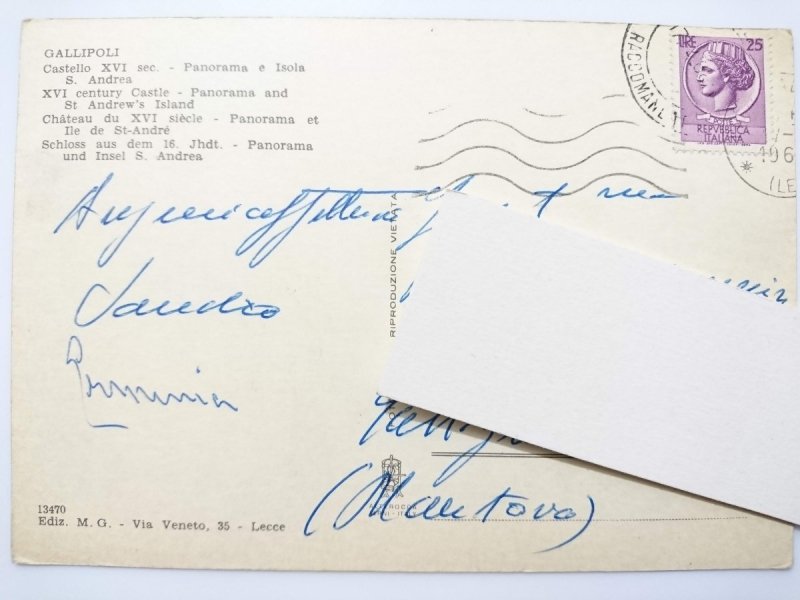 GALLIPOLI
Castello XVI sec. - Panorama e Isola
S. Andrea
XVI century Castle - Panorama and
St Andrew's Island
Château du XVI siècle - Panorama et
Ile de St-André
Schloss aus dem 16. Jhdt. - Panorama
und Insel S. Andrea
LIRE 25
REPVBBLICA
ITALIANA
RACCOMAN
196
(LE
Sandro
Erminia
RIPRODUZIONE VIETATA
(Mantova)
13470
Ediz. M. G. - Via Veneto, 35 - Lecce